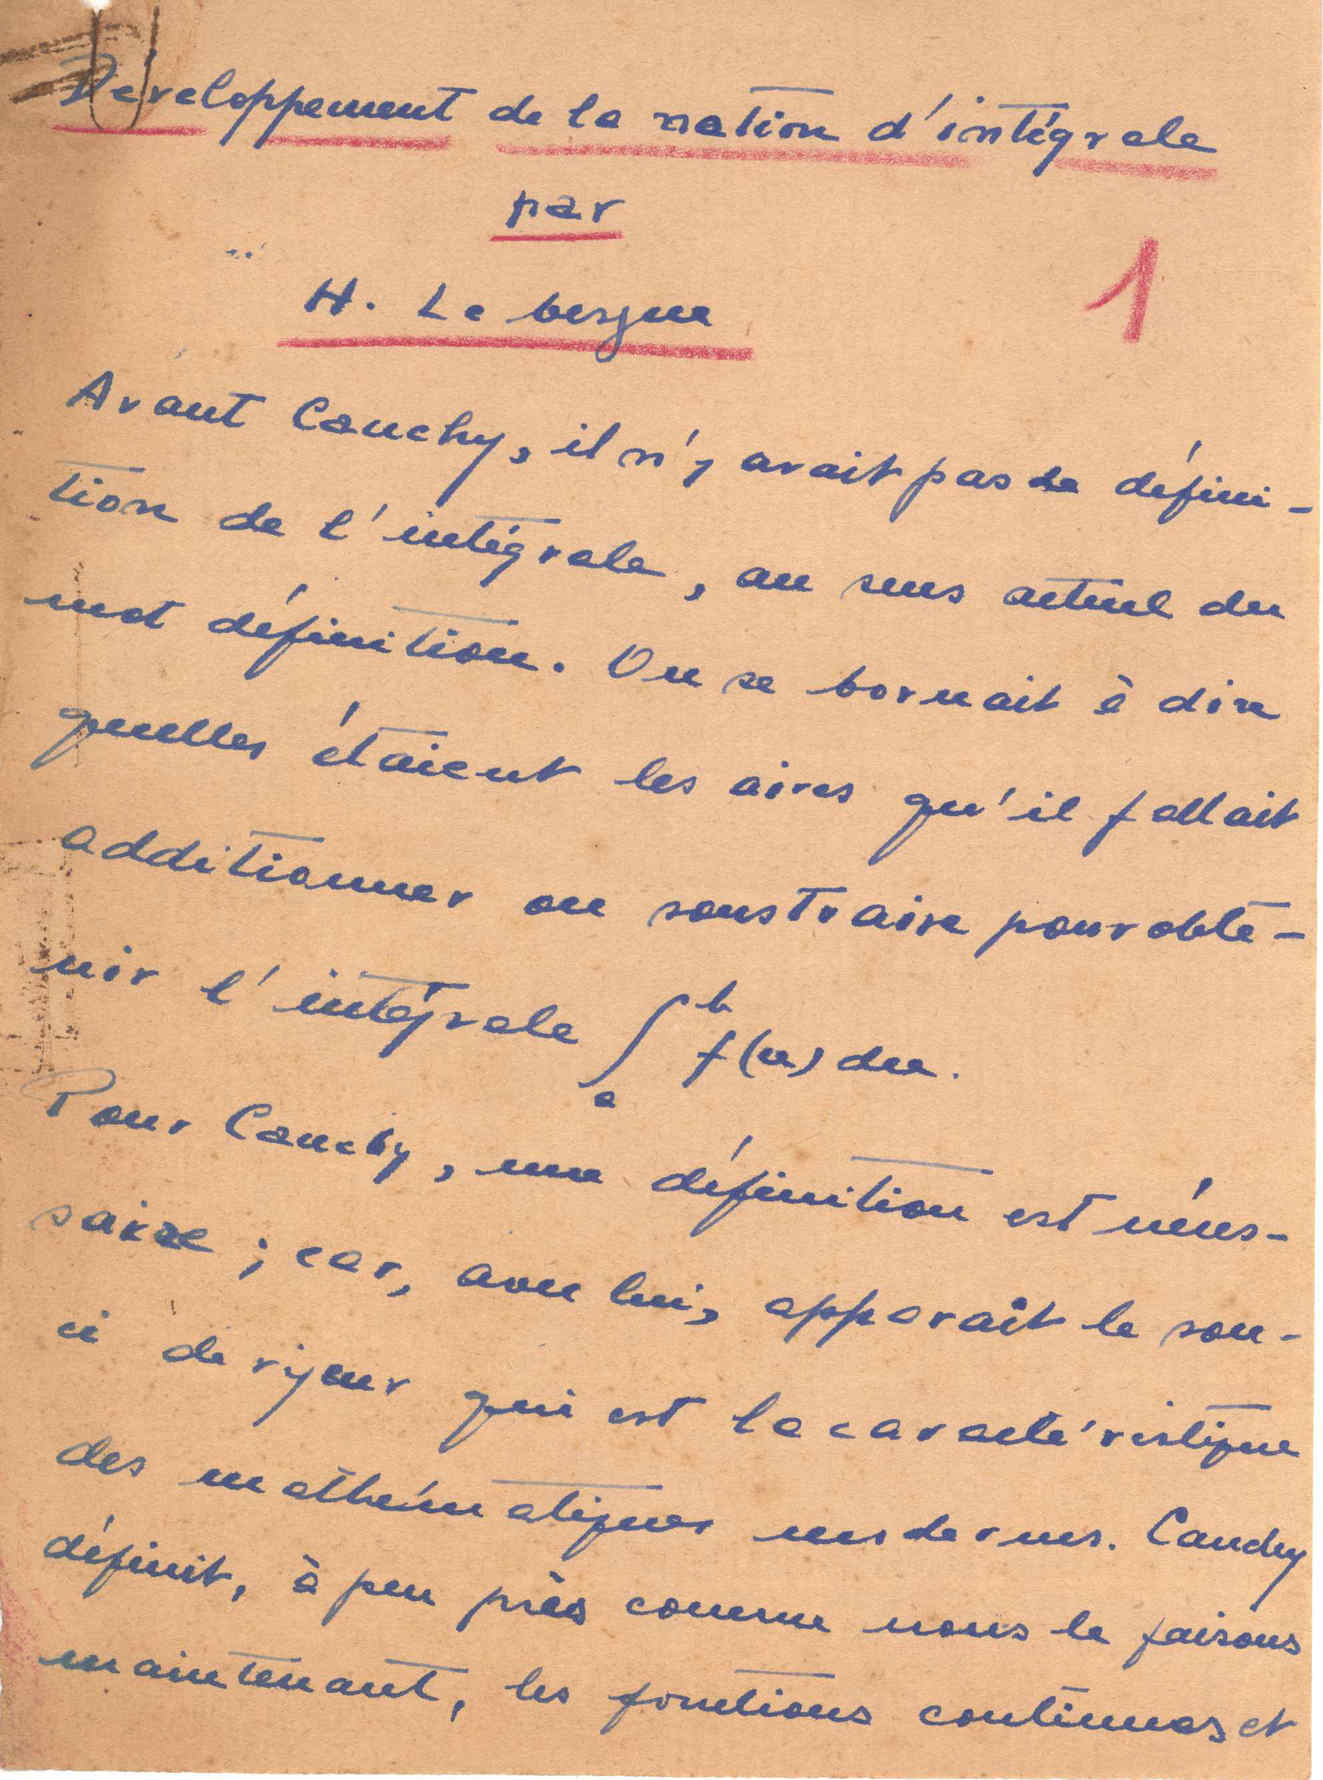 Développement de la notion d'intégrale
par
H. Lebesgue
1
Avant Cauchy, il n'y avait pas de défini-
tion de l'intégrale, au sens actuel du
mot définition. On se bornait à dire
quelles étaient les aires qu'il fallait
additionner ou soustraire pour obte-
nir l'intégrale ∫_a^b f(x) dx.
Pour Cauchy, une définition est néces-
saire ; car, avec lui, apparaît le sou-
ci de rigueur qui est la caractéristique
des mathématiques modernes. Cauchy
définit, à peu près comme nous le faisons
maintenant, les fonctions continues et